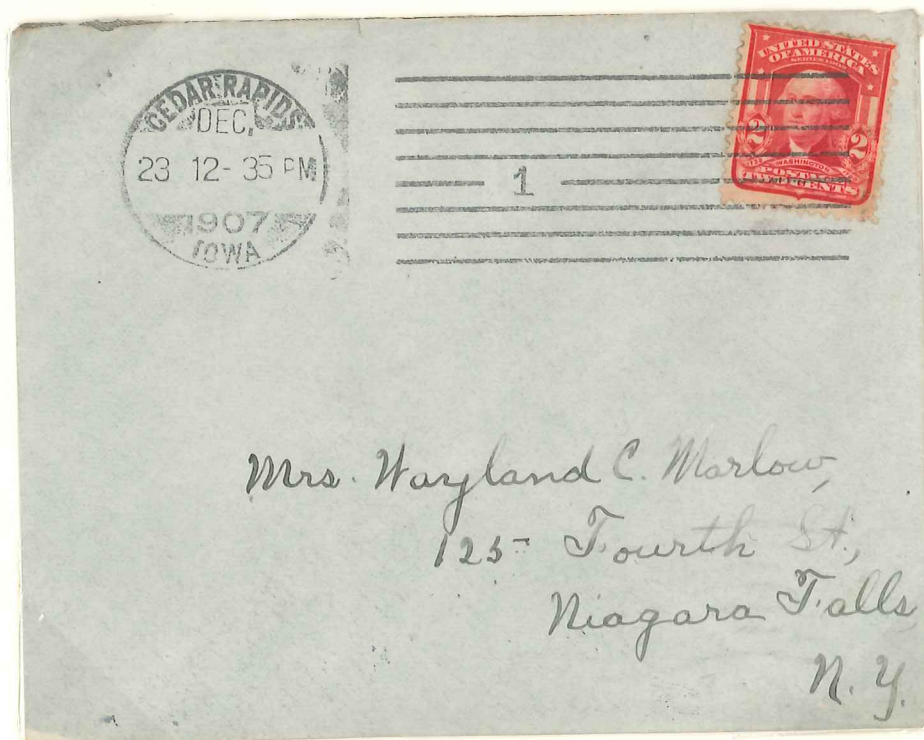 CEDAR RAPIDS
DEC,
23 12-35 PM
1907
IOWA
1
UNITED STATES
OF AMERICA
2 2
WASHINGTON
POSTAGE
TWO CENTS
Mrs. Wayland C. Marlow,
125 Fourth St.,
Niagara Falls
N. Y.